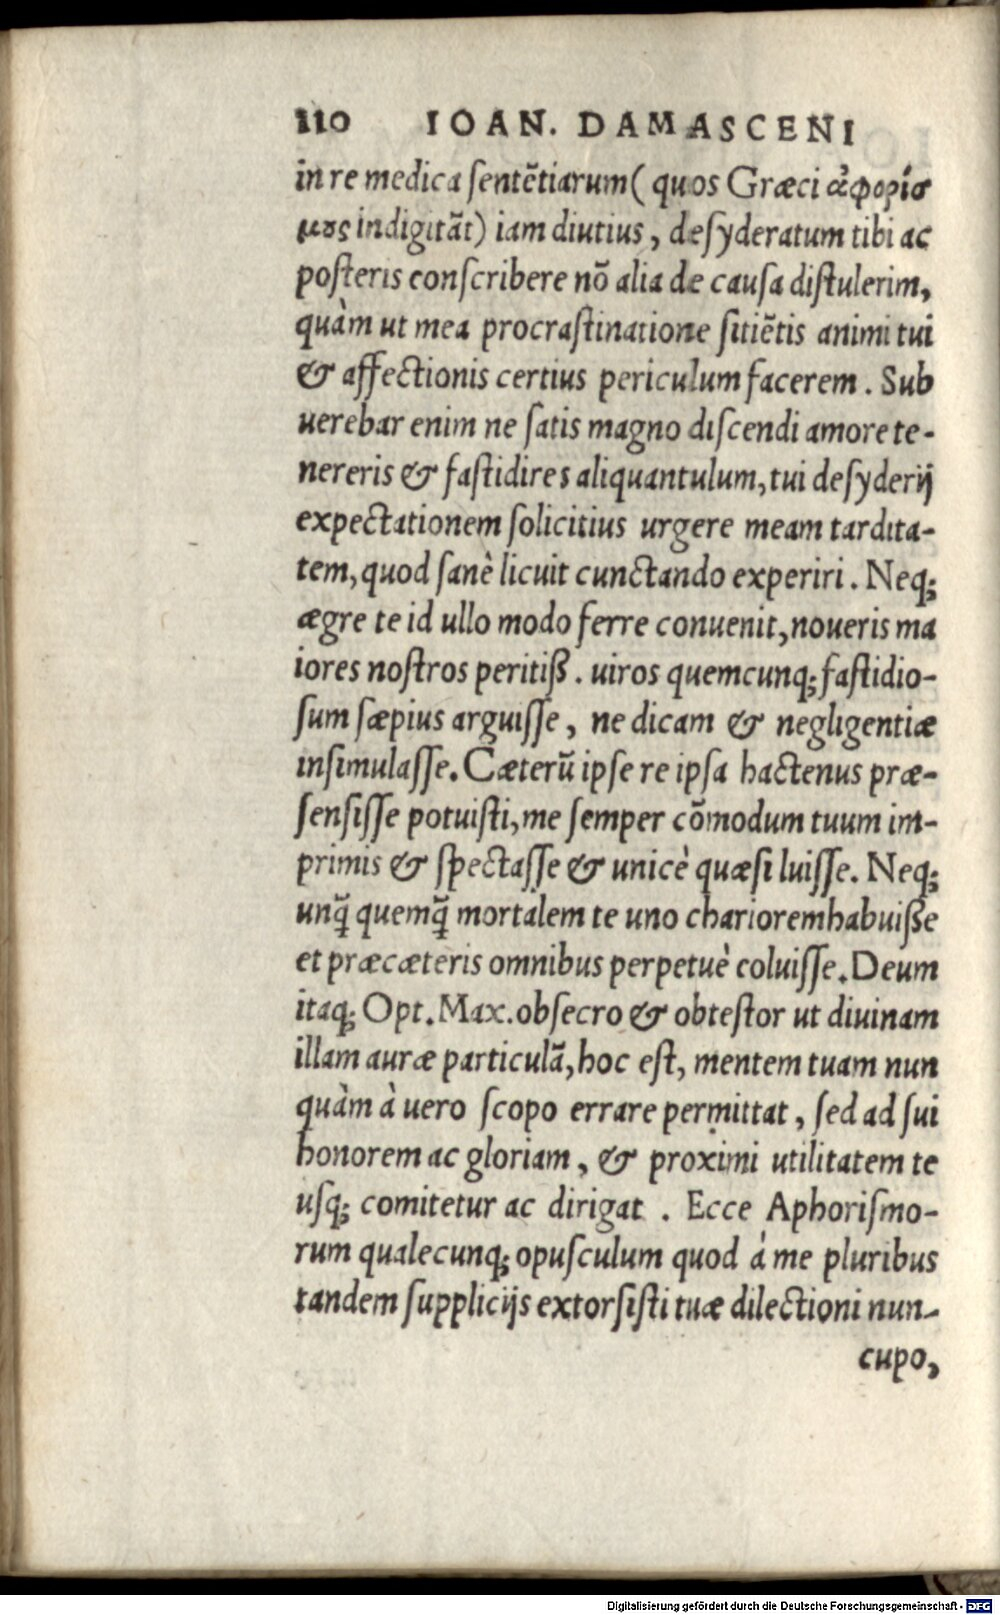 110 IOAN. DAMASCENI
in re medica ſentẽtiarum ( quos Græci ἀφορίσ
μους indigitãt) iam diutius, deſyderatum tibi ac
poſteris conſcribere nõ alia de cauſa diſtulerim,
quàm ut mea procraſtinatione ſitiẽtis animi tui
& affectionis certius periculum facerem. Sub
uerebar enim ne ſatis magno diſcendi amore te-
nereris & faſtidires aliquantulum, tui deſyderij
expectationem ſolicitius urgere meam tardita-
tem, quod ſanè licuit cunctando experiri. Neq;
ægre te id ullo modo ferre conuenit, noueris ma
iores noſtros peritiß. uiros quemcunq; faſtidio-
ſum ſæpius arguiſſe, ne dicam & negligentiæ
inſimulaſſe. Cæterũ ipſe re ipſa hactenus præ-
ſenſiſſe potuiſti, me ſemper cõmodum tuum im-
primis & ſpectaſſe & unicè quæſi luiſſe. Neq;
unq̃ quemq̃ mortalem te uno chariorem habuiße
et præcæteris omnibus perpetuè coluiſſe. Deum
itaq; Opt. Max. obſecro & obteſtor ut diuinam
illam auræ particulã, hoc eſt, mentem tuam nun
quàm à uero ſcopo errare permittat, ſed ad ſui
honorem ac gloriam, & proximi utilitatem te
uſq; comitetur ac dirigat. Ecce Aphoriſmo-
rum qualecunq; opuſculum quod à me pluribus
tandem ſupplicijs extorſiſti tuæ dilectioni nun-
cupo,
Digitalisierung gefördert durch die Deutsche Forschungsgemeinschaft - DFG